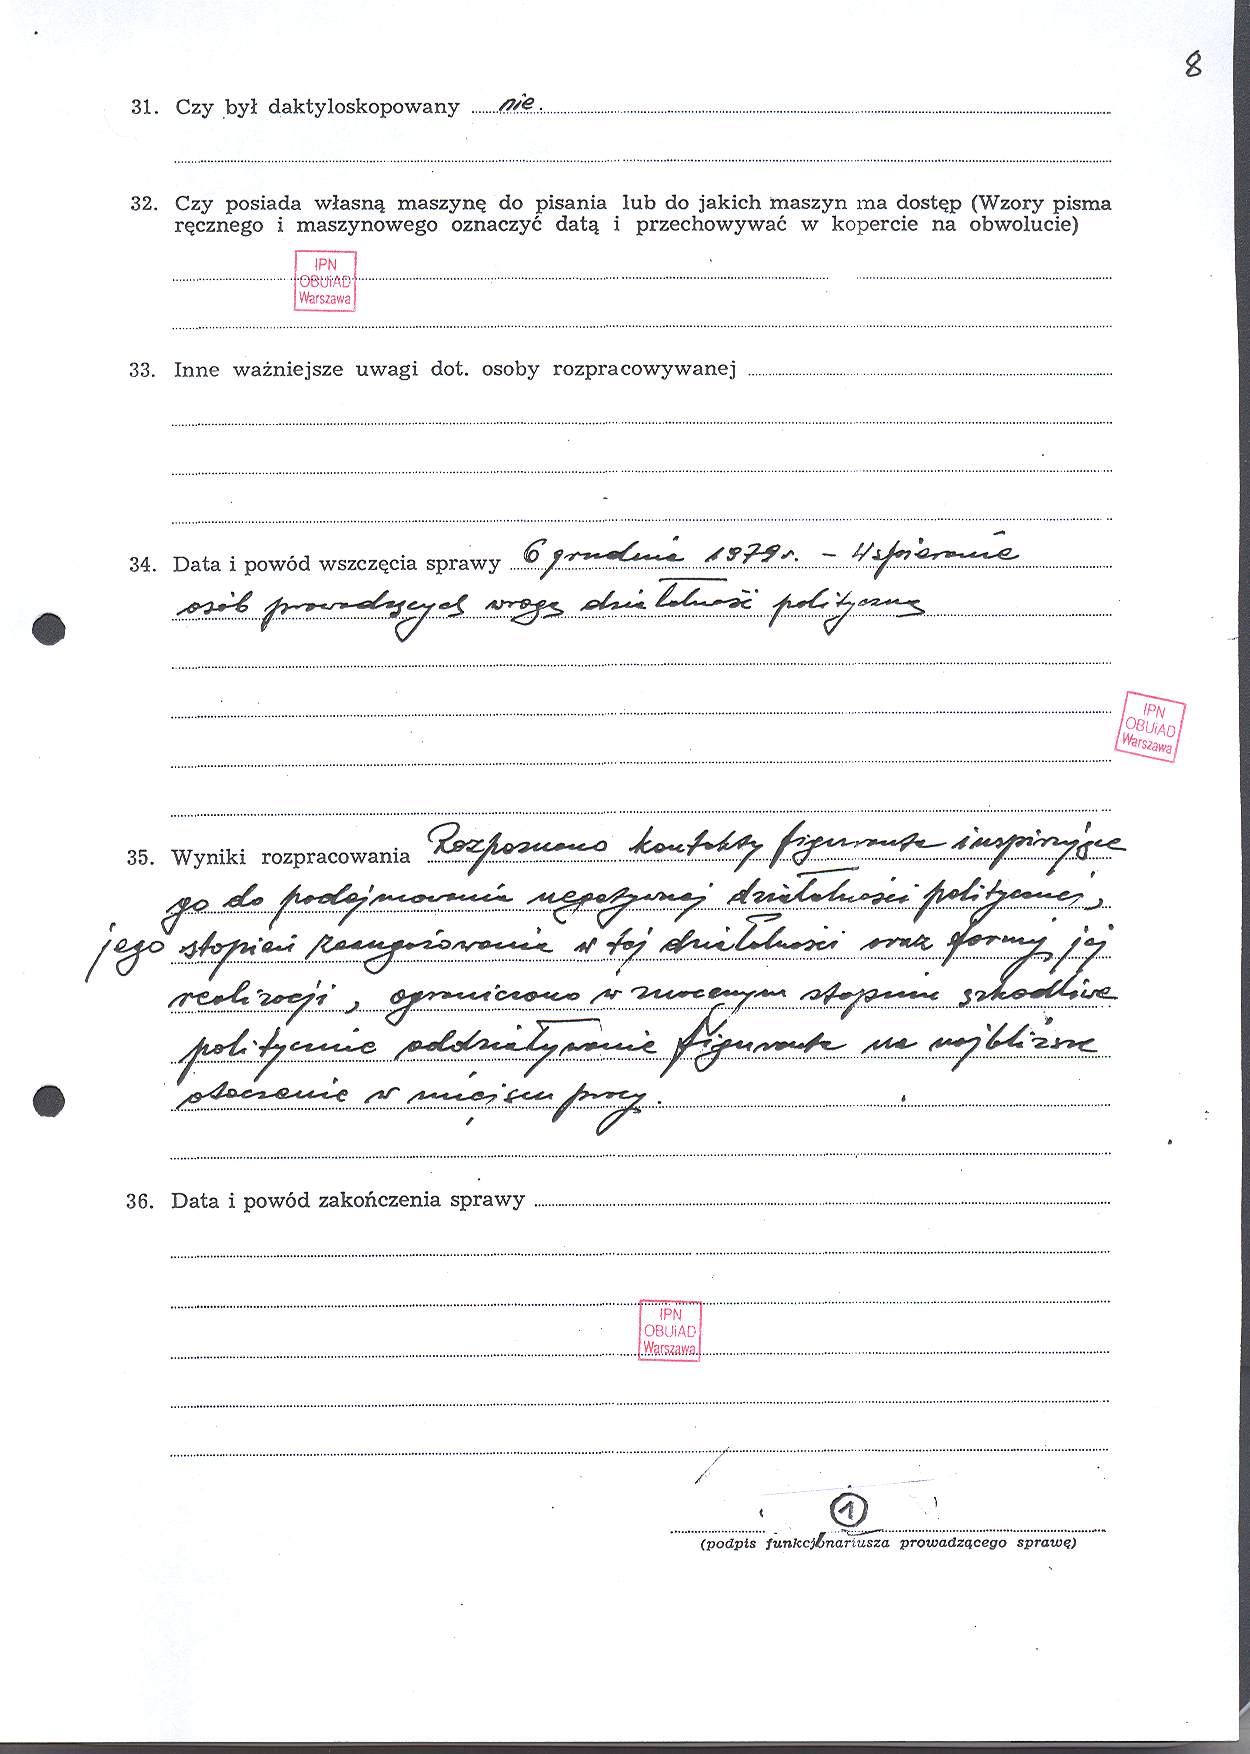 8
31. Czy był daktyloskopowany nie.
32. Czy posiada własną maszynę do pisania lub do jakich maszyn ma dostęp (Wzory pisma
ręcznego i maszynowego oznaczyć datą i przechowywać w kopercie na obwolucie)
IPN
OBUiAD
Warszawa
33. Inne ważniejsze uwagi dot. osoby rozpracowywanej
34. Data i powód wszczęcia sprawy 6 grudnia 1979 r. – Wspieranie
osób prowadzących wrogą działalność polityczną
IPN
OBUiAD
Warszawa
35. Wyniki rozpracowania Rozpoznano kontakty figuranta inspirujące
go do podejmowania negatywnej działalności politycznej,
jego stopień zaangażowania w tej działalności oraz formy jej
realizacji, ograniczono w znacznym stopniu szkodliwe
politycznie oddziaływanie figuranta na najbliższe
otoczenie w miejscu pracy.
36. Data i powód zakończenia sprawy
IPN
OBUiAD
Warszawa
1
(podpis funkcjonariusza prowadzącego sprawę)